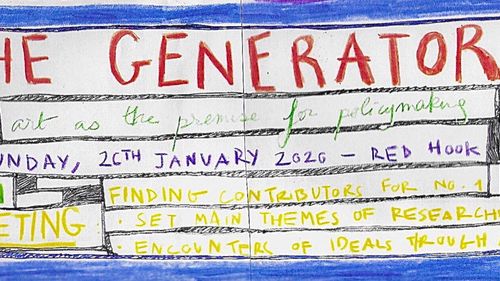 HE GENERATOR
art as the premise for policymaking
UNDAY, 26TH JANUARY 2020 - RED HOOK
FINDING CONTRIBUTORS FOR NO. 1
ETING
· SET MAIN THEMES OF RESEARCH
· ENCOUNTERS OF IDEALS THROUGH